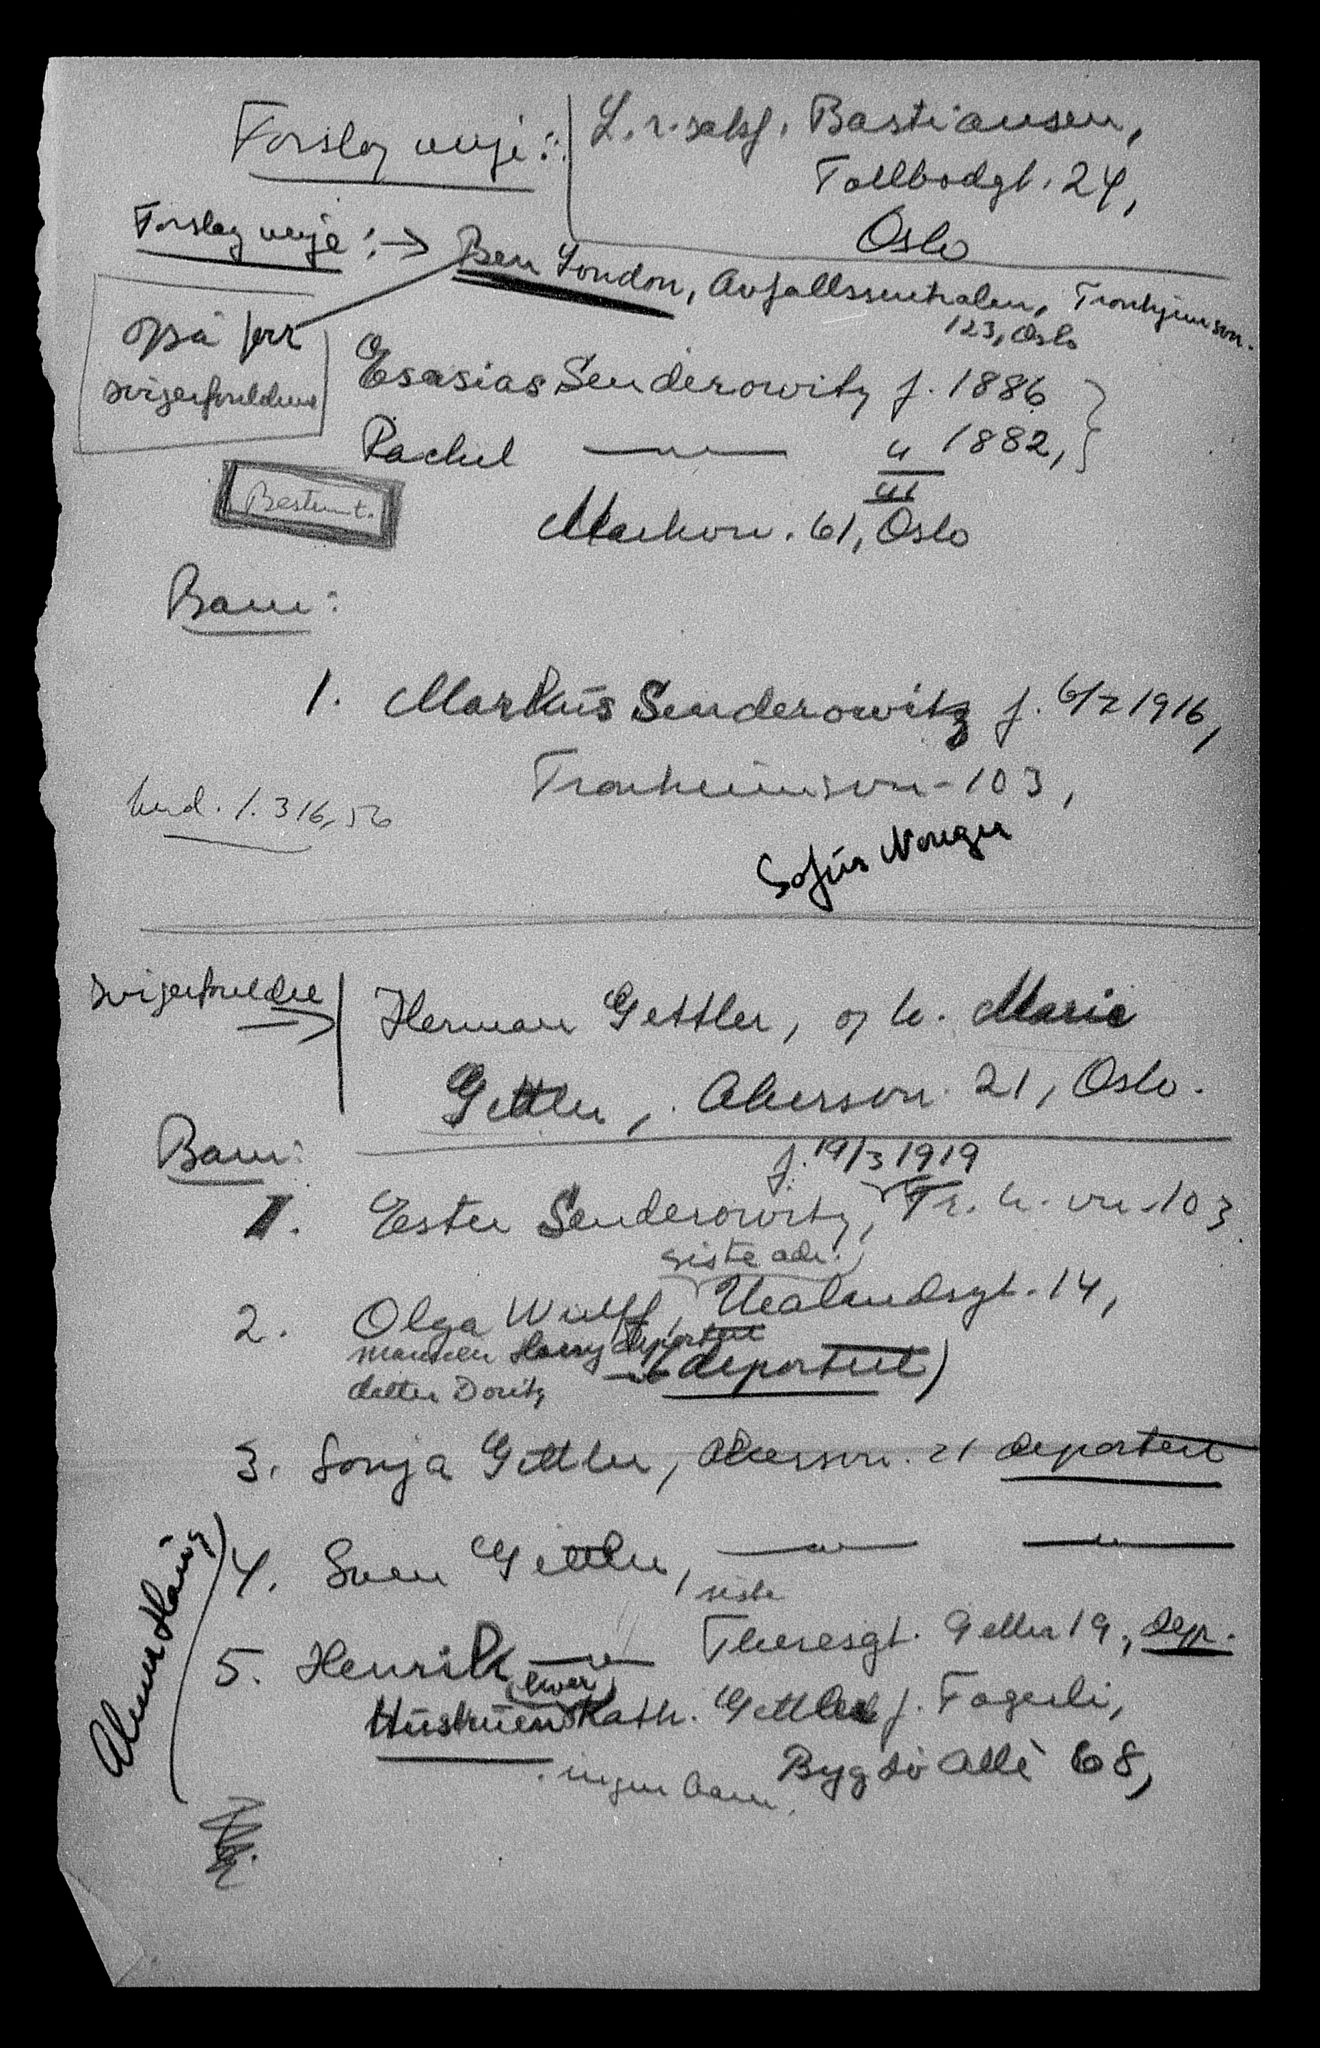 Forslag verje:
L.r.sakf. Bastiansen,
Tollbodgt. 24,
Oslo
Forslag verje: → Ben London, Avfallssentralen, Tronhjemsvn.
123, Oslo
også for
svigerforeldrene
Esasias Senderowitz f. 1886
Rachel —"— " 1882,
Bestemt.
III
Markvn. 61, Oslo
Barn:
1. Markus Senderowitz f. 6/2 1916,
Tronheimsvn - 103,
1.316,56
Sofus
Svigerforeldre
→
Herman Gettler, og h. Marie
Gettler, Akersvn. 21, Oslo.
Barn:
f. 19/3 1919
1. Ester Senderowitz, Tr. h. vn. 103
siste adr.
2. Olga Wulff, Uelandsgt. 14,
mannen Harry deportert
datter Doritz —"— (deportert)
3. Sonja Gettler, Akersvn. 21 deportert
4. Sven Gettler, —"— —"—
siste
5. Henrik —"— Theresgt. 19, dep.
Hustruen Kath. Gettler f. Fagerli,
Bygdö Allè 68,
ingen barn.